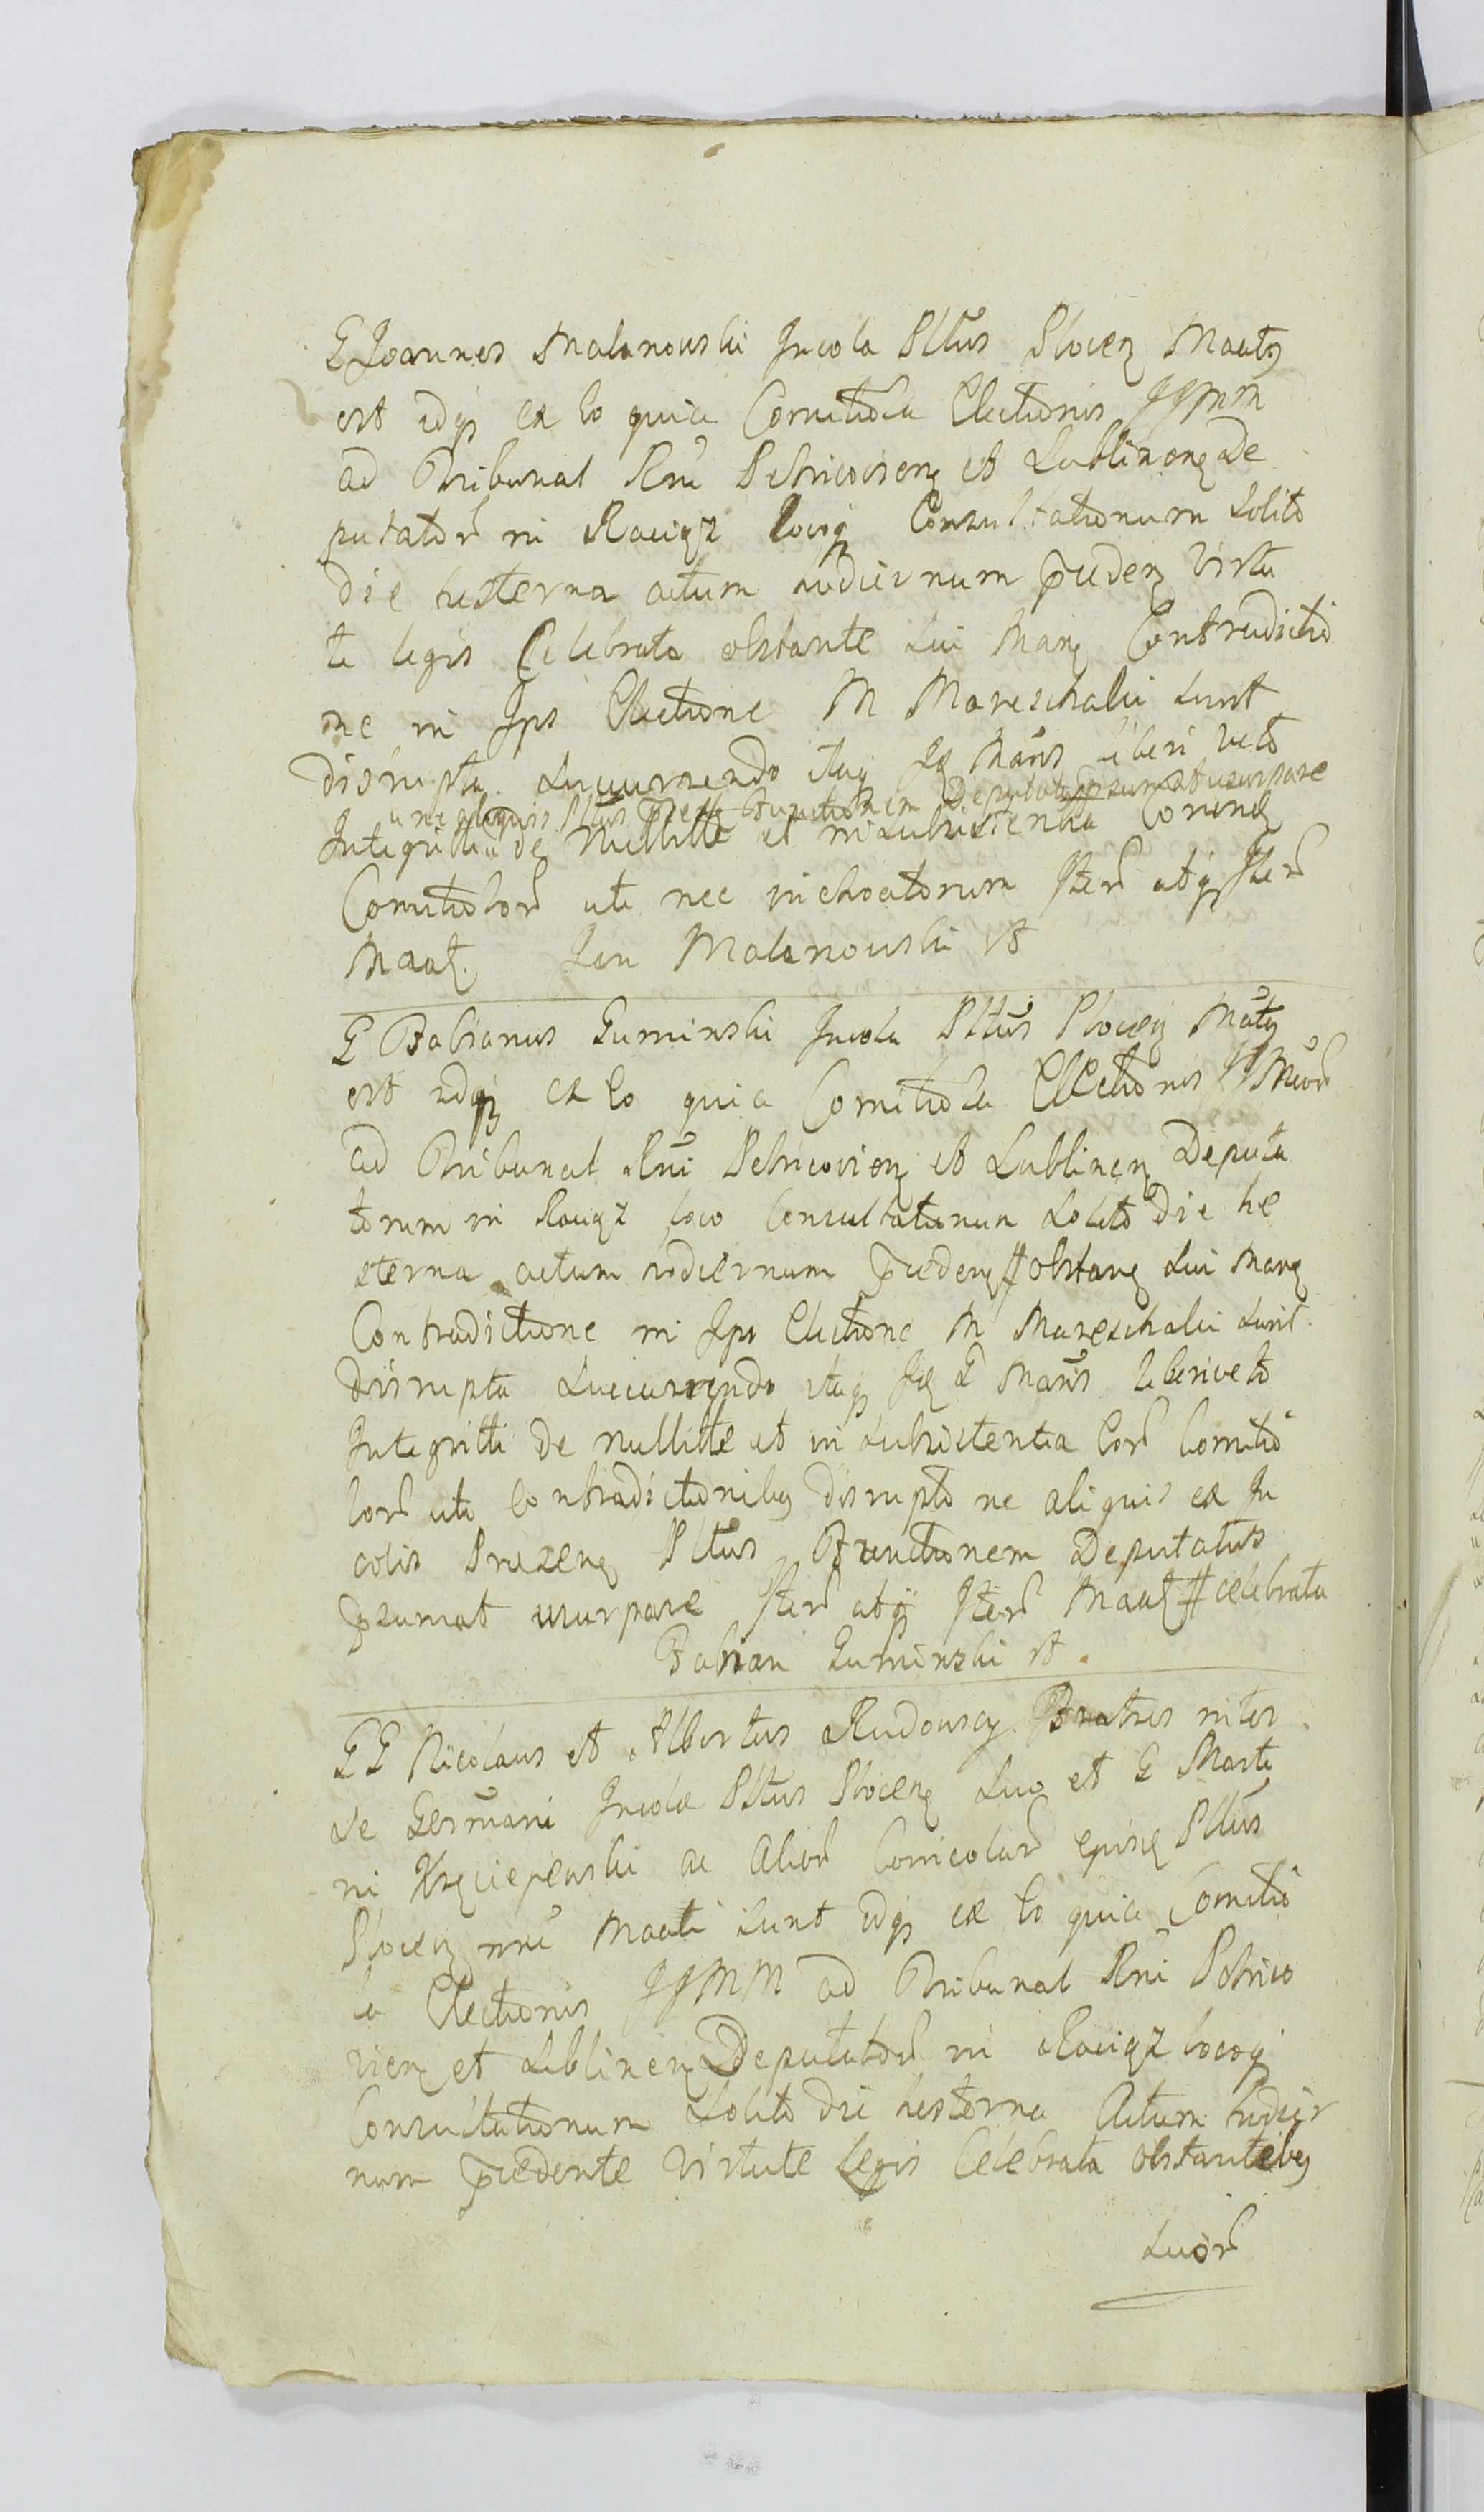 G Joannes Malanowski Incola Pltus Plocen Maatq
est idq ex eo quia Comitiola Electionis JJMM
ad Tribunal Rni Petricovien et Lublinen De
putator in Raciąz locoq Consultationum solito
die hesterna actum hodiernum pcceden virtu
te legis Celebrata obstante sui Man Contradictio
ne in Ips Electione M Mareschalci sunt
disrupta Succurrendo itaq Man liberi veto
une aliquis Pltus Functionem Deputatus psumat usurpare
Integritti de Nullitte et in subsistentia
Comitiolor uti nec inchoatorum Iter atq Iter
Maat. Jan Malanowski
G Fabianus Guminski Incola Pltus Plocen Maatq
est idq ex eo quia Comitiola Electionis JJMcor
ad Tribunal Rni Petricovien et Lublinen Deputa
torum in Raciąz loco Consultationum solito die he
sterna actum hodiernum pcceden # obstan sui Man
Contradictione in Ips Electione M Mareschalci sunt
disrupta Succurrendo itaq G Manis liberi veto
Integritti de Nullitte et in subsistentia Eor Comitio
lor uti Contradictionibq disrupto ne aliquis ex In
colis Prezen Pltus Functionem Deputatus
psumat usurpare Iter atq Iter Maat # celebrata
Fabian Guminski
GG Nicolaus et Albertus Rudowscy Fratres inter
se Germani Incolæ Pltus Plocen suo et G Marti
ni ac Alior Comcolar Pltus
Plocen Maati sunt idq ex eo quia Comitio
la Electionis JJMM ad Tribunal Rni Petrico
vien et Lublinen Deputator in Raciąz locoq
Consultationum solito die hesterna Actum hodier
num pcedente virtute legis Celebrata obstantibq
suor